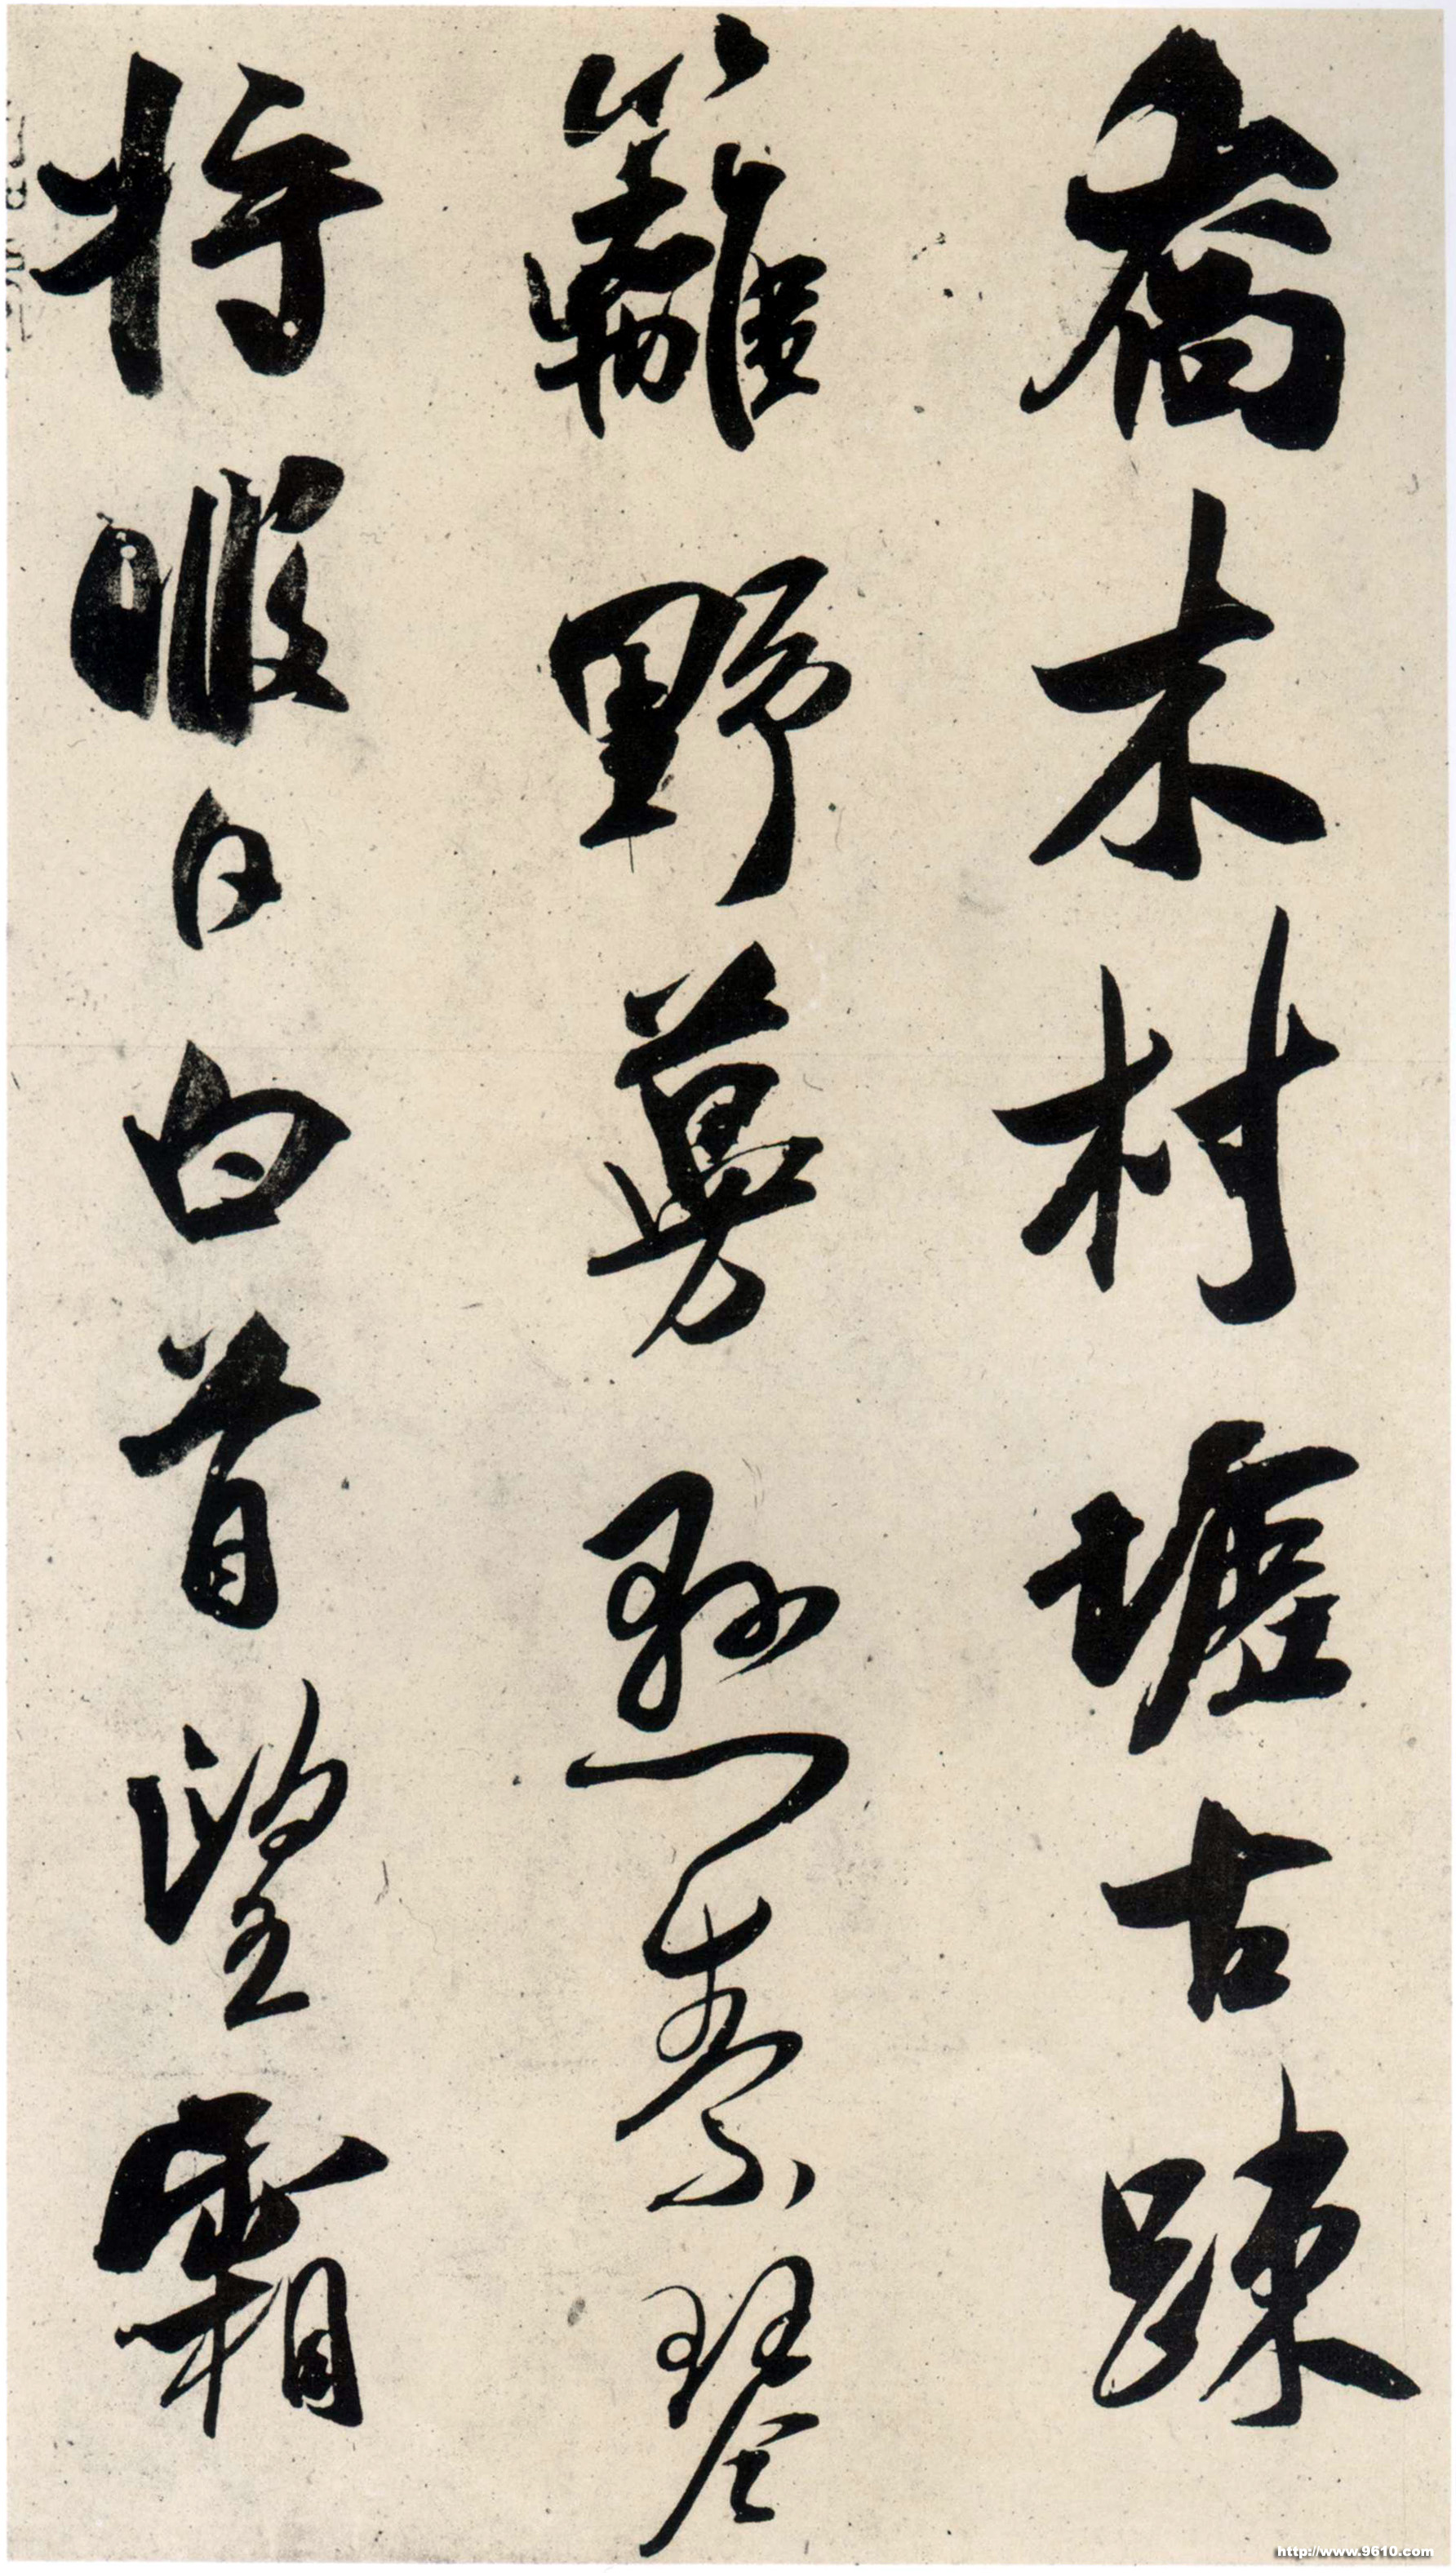 喬木村墟古疎
籬野蔓懸素琴
将暇日白首望霜
http://www.9610.com